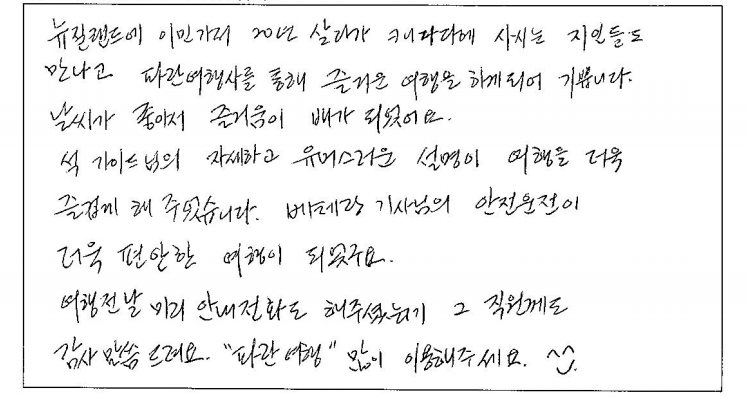 뉴질랜드에 이민가서 20년 살다가 캐나다에 사시는 지인들도
만나고 파란여행사를 통해 즐거운 여행을 하게되어 기쁩니다.
날씨가 좋아서 즐거움이 배가 되었어요.
석 가이드님의 자세하고 유머스러운 설명이 여행을 더욱
즐겁게 해 주었습니다. 베테랑 기사님의 안전운전이
더욱 편안한 여행이 되었구요.
여행전날 미리 안내전화도 해주셨는데 그 직원께도
감사 말씀 드려요. "파란여행" 많이 이용해주세요. ^^